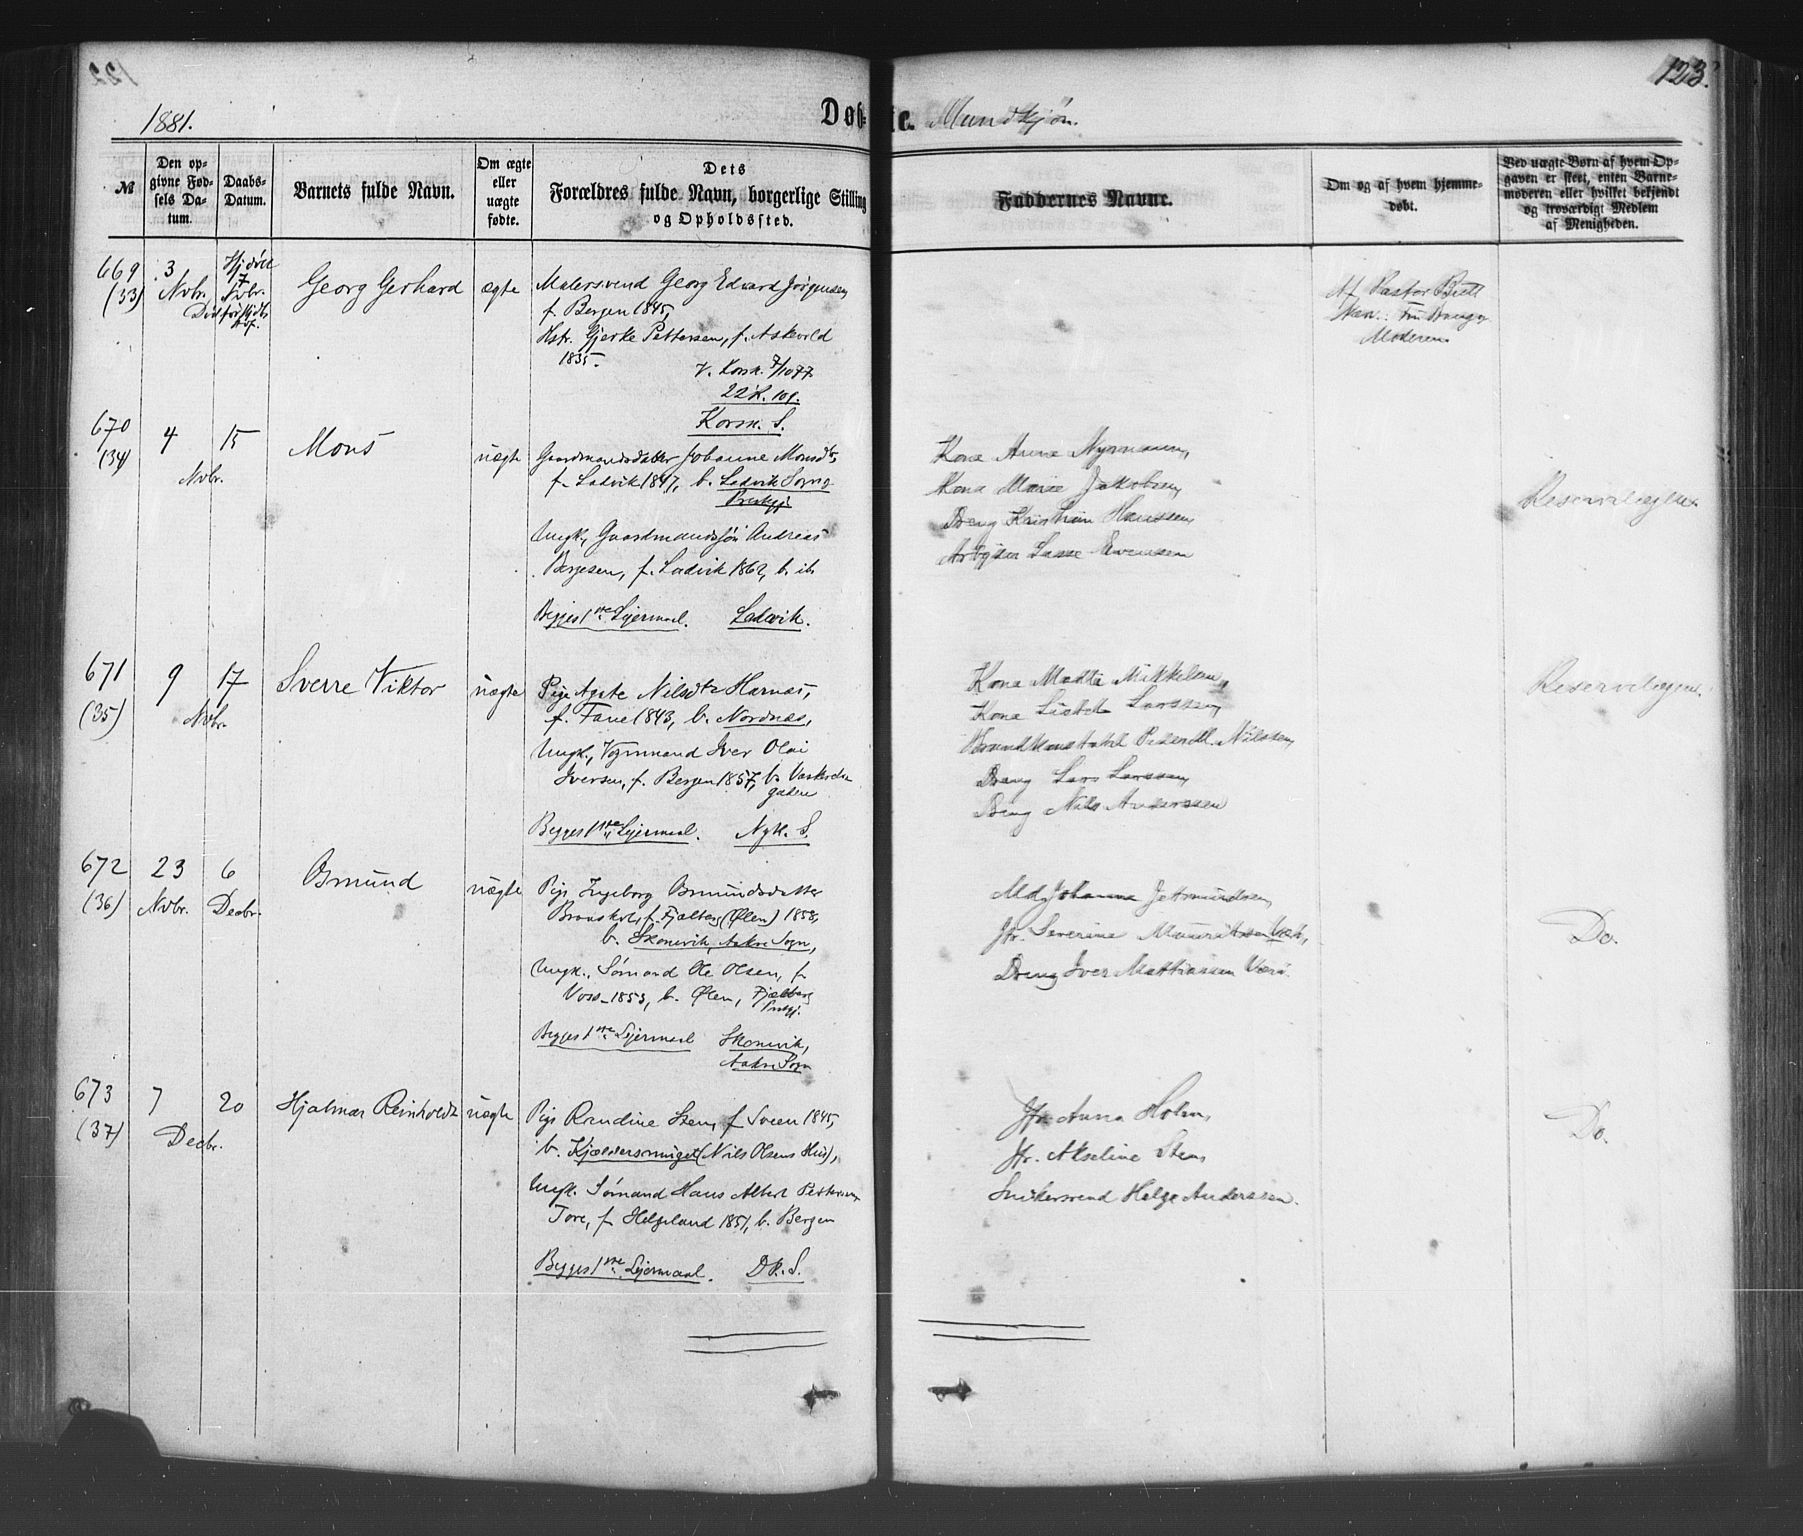 123.
1881.
Døb- te. Mandkjøn.
№
Den op-
givne Fød-
sels Da-
tum.
Daabs-
Datum.
Barnets fulde Navn.
Om ægte
eller
uægte
fødte.
Dets
Forældres fulde Navn, borgerlige Stilling
og Opholdssted.
Faddernes Navne.
Om og af hvem hjemme-
døbt.
Ved uægte Børn af hvem Op-
gaven er skeet, enten Barne-
moderen eller hvilket bekjendt
og troværdigt Medlem
af Menigheden.
669
(33)
3
Nvbr.
Hjdøbt
7
Nvbr.
Død
Georg Gerhard
ægte
Malersvend Georg Edvard Jørgensen,
f. Bergen 1845,
Hstr. Gjerke Pettersen, f. Askvold
1835.
V. Korsk. 7/10 77.
22 K. 109.
Korsk. S.
Af Pastor Bull
Moderen
670
(34)
4
15
Nvbr.
Mons
uægte
Gaardmandsdatter Johanne Monsdtr,
f. Ladvik 1847, b. Ladvik Sogn
Prestgj.
Ungk., Gaardmandssøn Andreas
Børgesen, f. Ladvik 1862, b. ib
Begges 1ste Lejermaal. Ladvik.
Kone Anne Nyrmann,
Kone Marie Jakobsen,
Dreng Kristian Hanssen,
Arbejder Lasse Evensen
Reservelægen.
671
(35)
9
17
Nvbr.
Sverre Viktor
uægte
Pige Agate Nilsdtr Hornæs,
f. Fane 1843, b. Nordnæs,
Ungk., Vognmand Iver Olai
Iversen, f. Bergen 1857, b. Vaskerelv
gaden
Begges 1ste Lejermaal. Nyk. S.
Kone Mætte Mikkelsen,
Kone Lisbet Larssen,
Brandkonstabel Peder Nilssen,
Dreng Lars Larssen,
Dreng Nils Anderssen
Reservelægen.
672
(36)
23
Nvbr.
6
Decbr.
Osmund
uægte
Pige Ingeborg Osmundsdatter
f. Fjelberg (Ølen) 1858,
b. Skonevik, Aakre Sogn,
Ungk., Sømand Ole Olsen, f.
Voss 1853, b. Ølen, Fjelberg
Prstgj.
Begges 1ste Lejermaal Skonevik,
Aakre Sogn
Md. Johanna Jetmundsen,
Jfr. Severine Mauritsen
Dreng Iver Mathiassen
Do.
673
(37)
7
20
Decbr.
Hjalmar Reinholdt
uægte
Pige Randine Sten, f. Sveen 1845,
b. Kjeldersmuget (Nils Olsens Hus),
Ungk. Sømand Hans Albert Petterson
Tore, f. Helgeland 1851, b. Bergen
Begges 1ste Lejermaal. DK. S.
Jfr. Anna Holm,
Jfr. Akseline Sten,
Snikersvend Helge Anderssen.
Do.